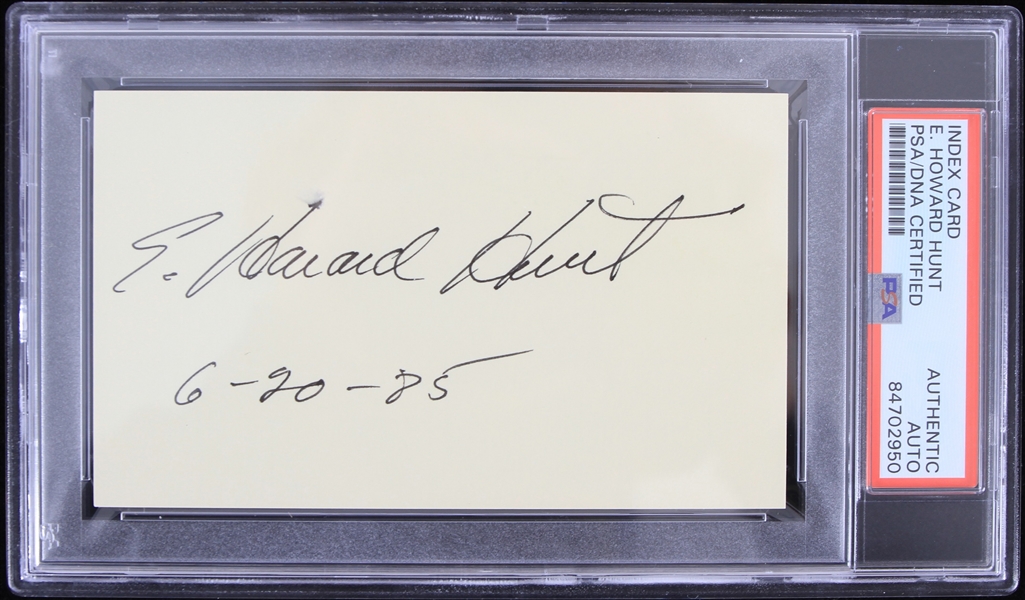 E. Howard Hunt
6-20-85
INDEX CARD
E. HOWARD HUNT
PSA/DNA CERTIFIED
PSA
AUTHENTIC
AUTO
84702950